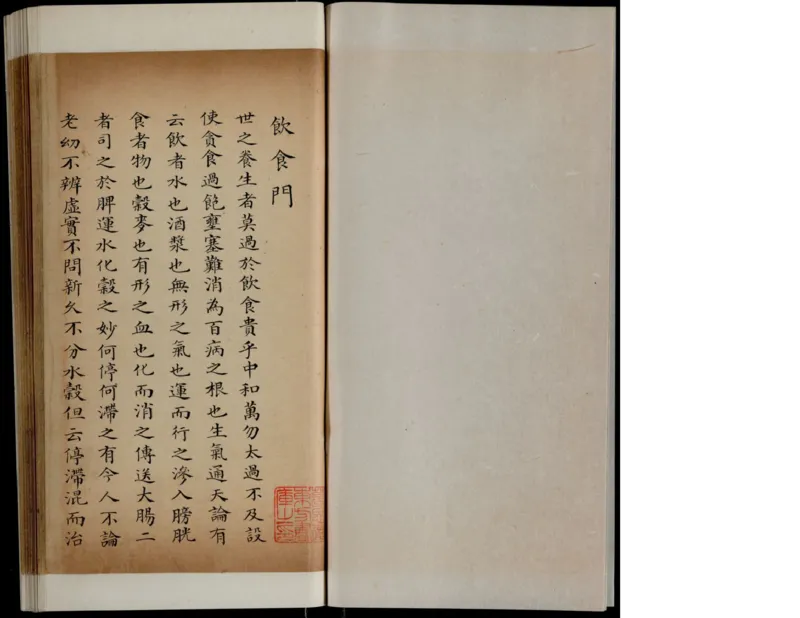 飲食門
世之養生者莫過於飲食貴乎中和萬勿太過不及設
使貪食過飽壅塞難消為百病之根也生氣通天論有
云飲者水也酒漿也無形之氣也運而行之滲入膀胱
食者物也穀麥也有形之血也化而消之傳送大腸二
者司之於脾運水化穀之妙何停何滯之有今人不論
老幼不辨虛實不問新久不分水穀但云停滯混而治